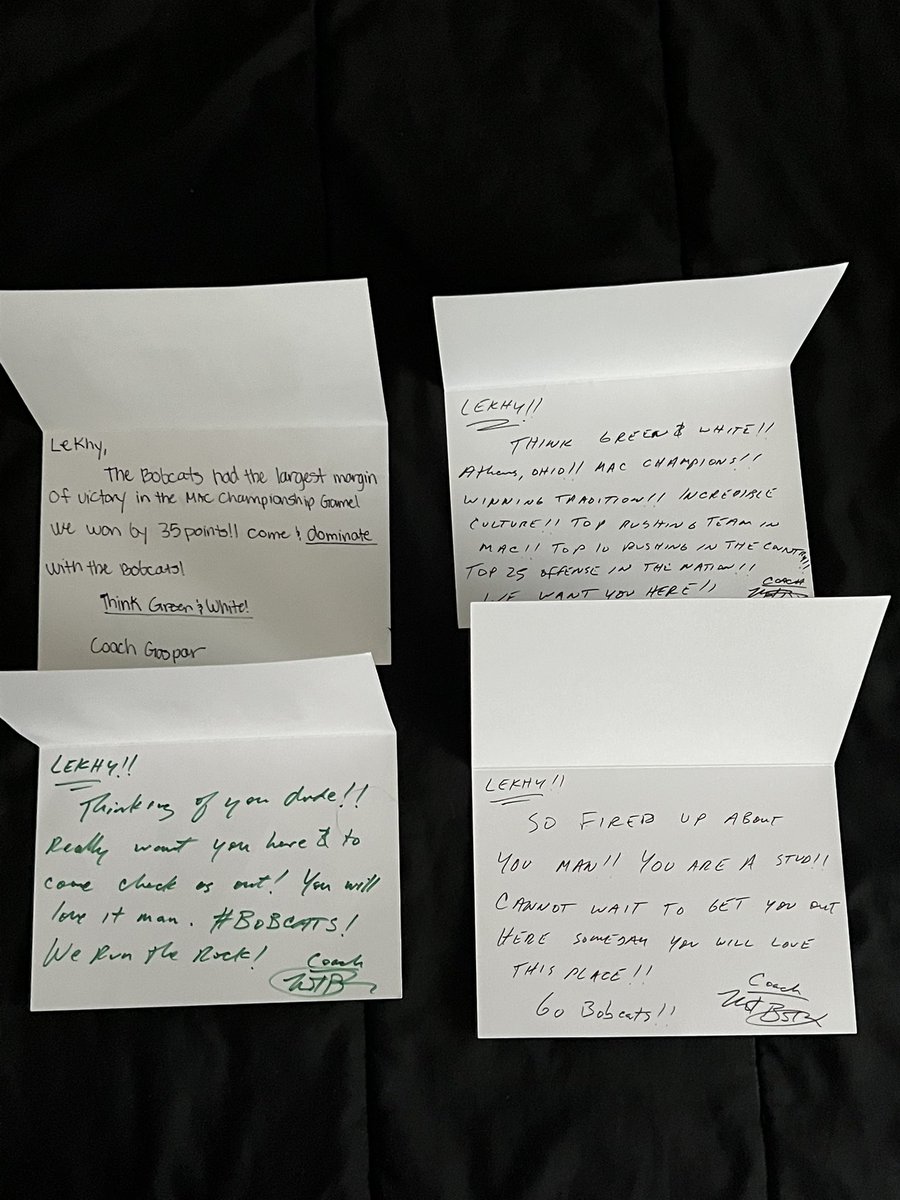 LeKhy,
The Bobcats had the largest margin
of victory in the MAC Championship Game!
We won by 35 points!! Come & dominate
with the Bobcats!
Think Green & White!
Coach Gaspar
LEKHY!!
THINK GREEN & WHITE!!
Athens, OHIO!! MAC CHAMPIONS!!
WINNING TRADITION!! INCREDIBLE
CULTURE!! TOP RUSHING TEAM IN
MAC!! TOP 10 RUSHING IN THE COUNTRY!!
TOP 25 OFFENSE IN THE NATION!!
WE WANT YOU HERE!!
COACH
LEKHY!!
Thinking of you dude!!
Really want you here & to
come check us out! You will
love it man. #BOBCATS!
We Run the Rock!
Coach
LEKHY!!
SO FIRED UP ABOUT
YOU MAN!! YOU ARE A STUD!!
CANNOT WAIT TO GET YOU OUT
HERE SOMEDAY YOU WILL LOVE
THIS PLACE!!
GO Bobcats!!
Coach